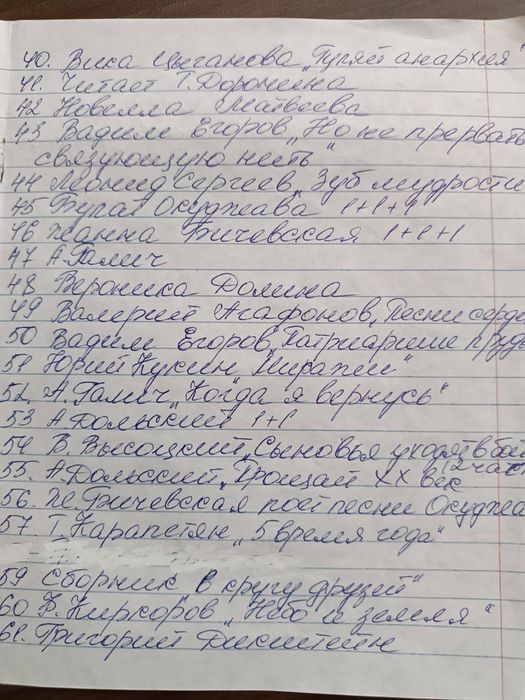 40. Вика Цыганова „Гуляй анархия"
41. Читает Т. Доронина
42 Новелла Матвеева
43 Вадим Егоров „Но не прервать
связующую нить"
44 Леонид Сергеев „Зуб мудрости
45 Булат Окуджава 1+1+1
46 Жанна Бичевская 1+1+1
47 А. Галич
48 Вероника Долина
49 Валерий Агафонов „Песни серд
50 Вадим Егоров „Патриаршие пруд
51 Юрий Кукин „Миражи"
52 А. Галич „Когда я вернусь"
53 А. Дольский 1+1
54 В. Высоцкий „Сыновья уходят в бой
(2 час
55. А. Дольский „Прощай XX век
56. Ж. Бичевская поёт песни Окуджа
57. Т. Карапетян „5 время года"
59 Сборник „В кругу друзей"
60 Ф. Киркоров „Небо и земля"
61. Григорий Дикштейн